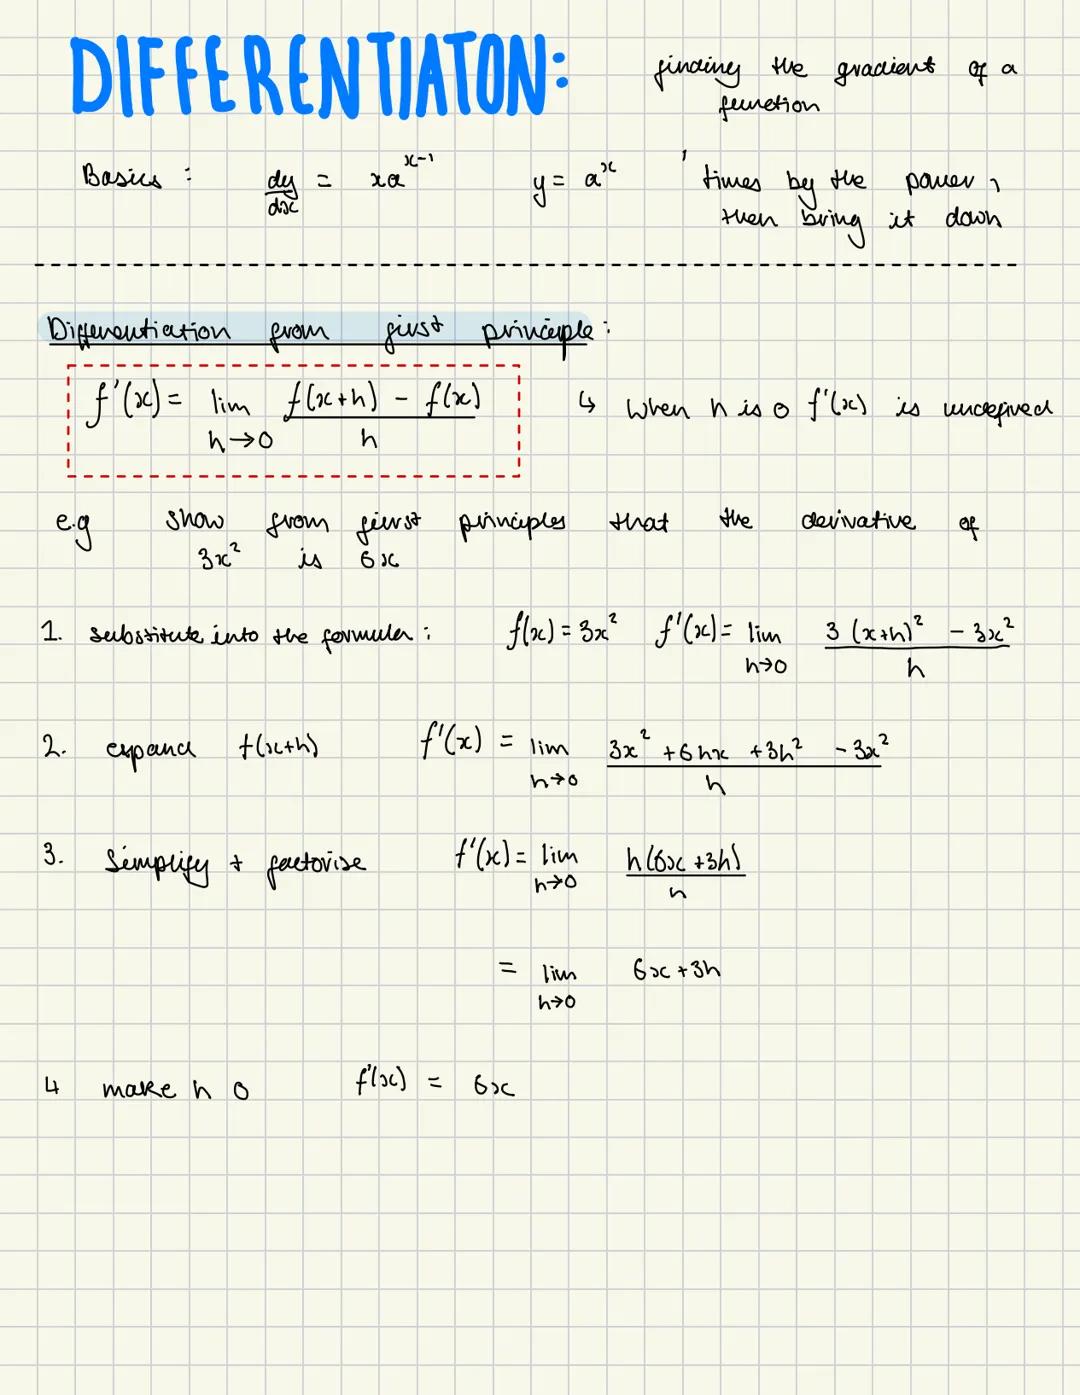 DIFFERENTIATON:
finding the gradient of a
function
Basics : dy/dx = xa^(x-1) y = a^x ' times by the power,
then bring it down
Differentiation from first principle:
f'(x) = lim h→0 f(x+h) - f(x) / h ↳ when h is 0 f'(x) is undefined
e.g show from first principles that the derivative of
3x² is 6x
1. substitute into the formula: f(x) = 3x² f'(x) = lim h→0 3(x+h)² - 3x² / h
2. expand f(x+h) f'(x) = lim h→0 3x² + 6hx + 3h² - 3x² / h
3. Simplify + factorise f'(x) = lim h→0 h(6x+3h) / h
= lim h→0 6x+3h
4 make h 0 f'(x) = 6x